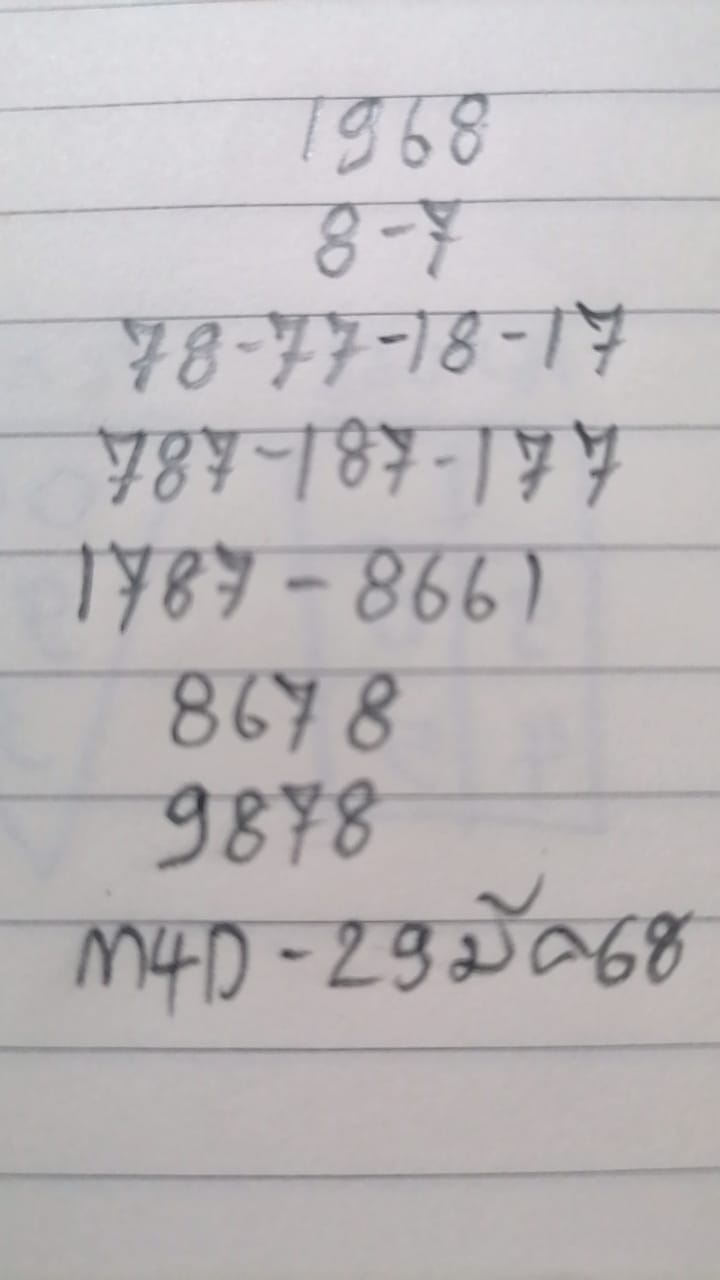 1968
8-7
78-77-18-17
787-187-177
1787-8661
8678
9878
M4D-29มัค68